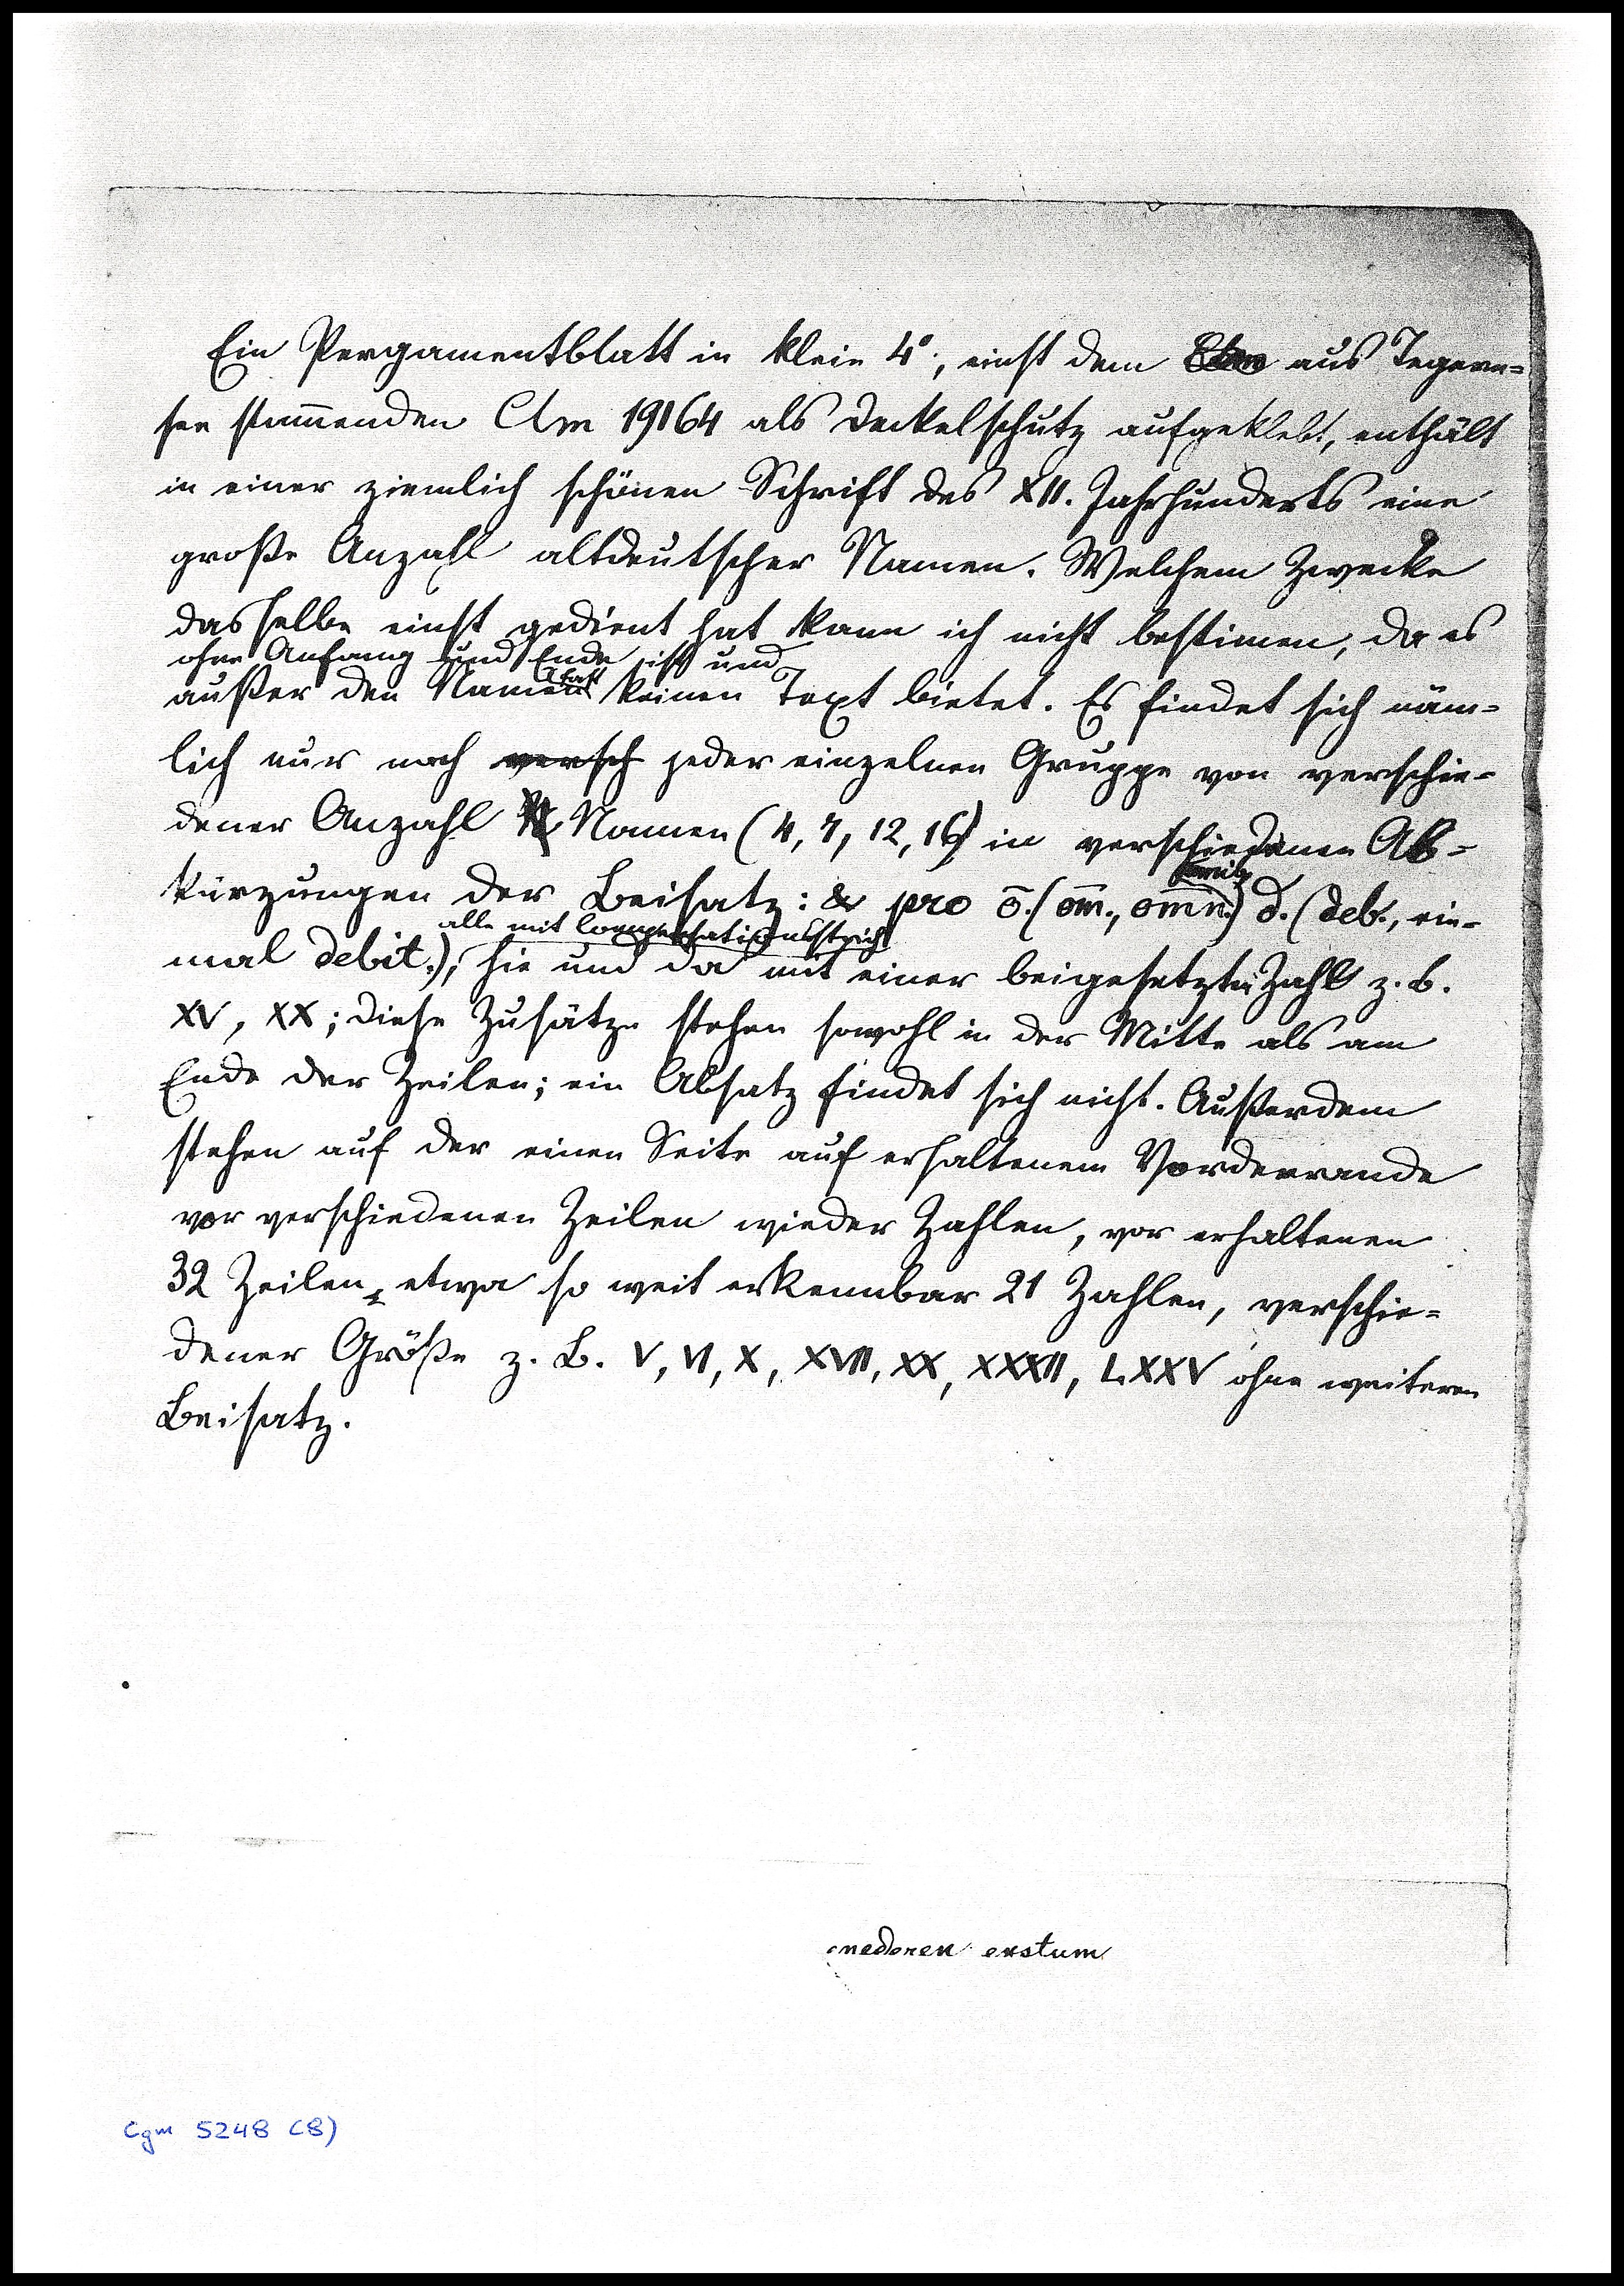 Ein Pergamentblatt in klein 4°., einst dem aus Tegern=
see stam̄enden Clm 19164 als Deckelschutz aufgeklebt, enthält
in einer ziemlich schönen Schrift des XII. Jahrhunderts eine
große Anzahl altdeutscher Namen. Welchem Zwecke
dasselbe einst gedient hat kann ich nicht bestimen, da es
ohne Anfang und Ende ist und
außer den Namen fast keinen Text bietet. Es findet sich näm=
lich nur nach versch jeder einzelnen Gruppe von verschie=
dener Anzahl Namen (4, 7, 12, 16) in verschiedenen Ab=
kürzungen der Beisatz: & pro ō. (om̄., omn̄.) d. (deb., ein=
alle mit Compensationsstrich
mal debit.), hie und da mit einer beigesetzten Zahl z. B.
XV, XX; diese Zusätze stehen sowohl in der Mitte als am
Ende der Zeilen; ein Absatz findet sich nicht. Außerdem
stehen auf der einen Seite auf erhaltenem Vorderrande
vor verschiedenen Zeilen wieder Zahlen, vor erhaltenen
32 Zeilen etwa so weit erkennbar 21 Zahlen, verschie=
dener Größe z. B. V, VI, X, XVII, XX, XXXII, LXXV ohne weiteren
Beisatz.
nederen erstum
Cgm 5248 (8)